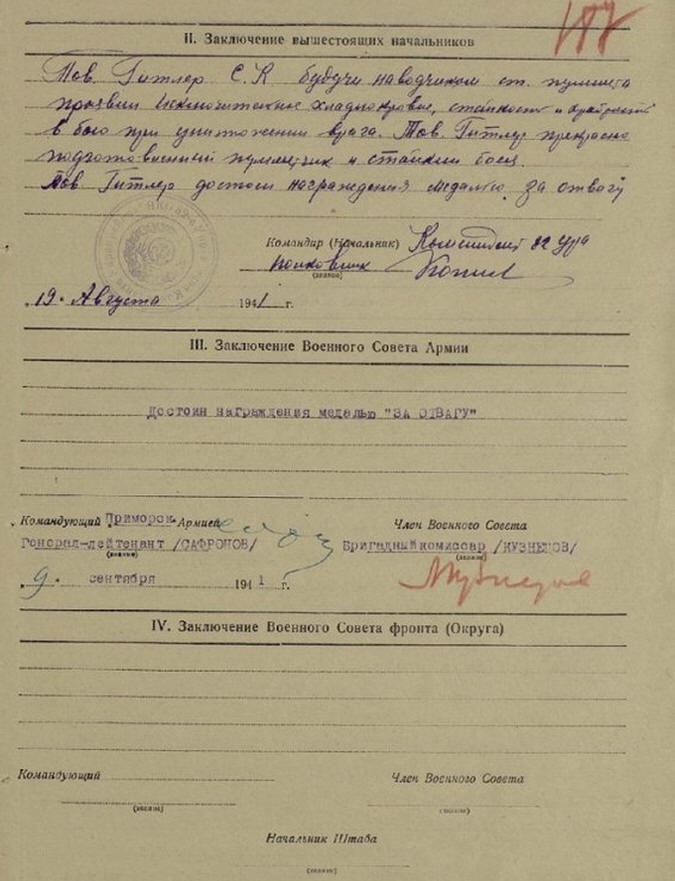 II. Заключение вышестоящих начальников
Тов. Гитлер С. К будучи наводчиком ст. пулмета
проявил исключительное хладнокровие, стойкость и
в бою при уничтожении врага. Тов. Гитлер прекрасно
подготовленный пулеметчик и стойкий боец.
Тов. Гитлер достоин награждения медалью за отвагу
Командир (Начальник) Комендант 82 ура
полковник
(звание)
19. Августа 1941 г.
III. Заключение Военного Совета Армии
Достоин награждения медалью "ЗА ОТВАГУ"
Командующий Приморск. Армией Член Военного Совета
Генерал-лейтенант /САФРОНОВ/ Бригадный комиссар /КУЗНЕЦОВ/
(звание) (звание)
9. сентября 1941 г.
IV. Заключение Военного Совета фронта (Округа)
Командующий Член Военного Совета
(звание) (звание)
Начальник Штаба
(звание)